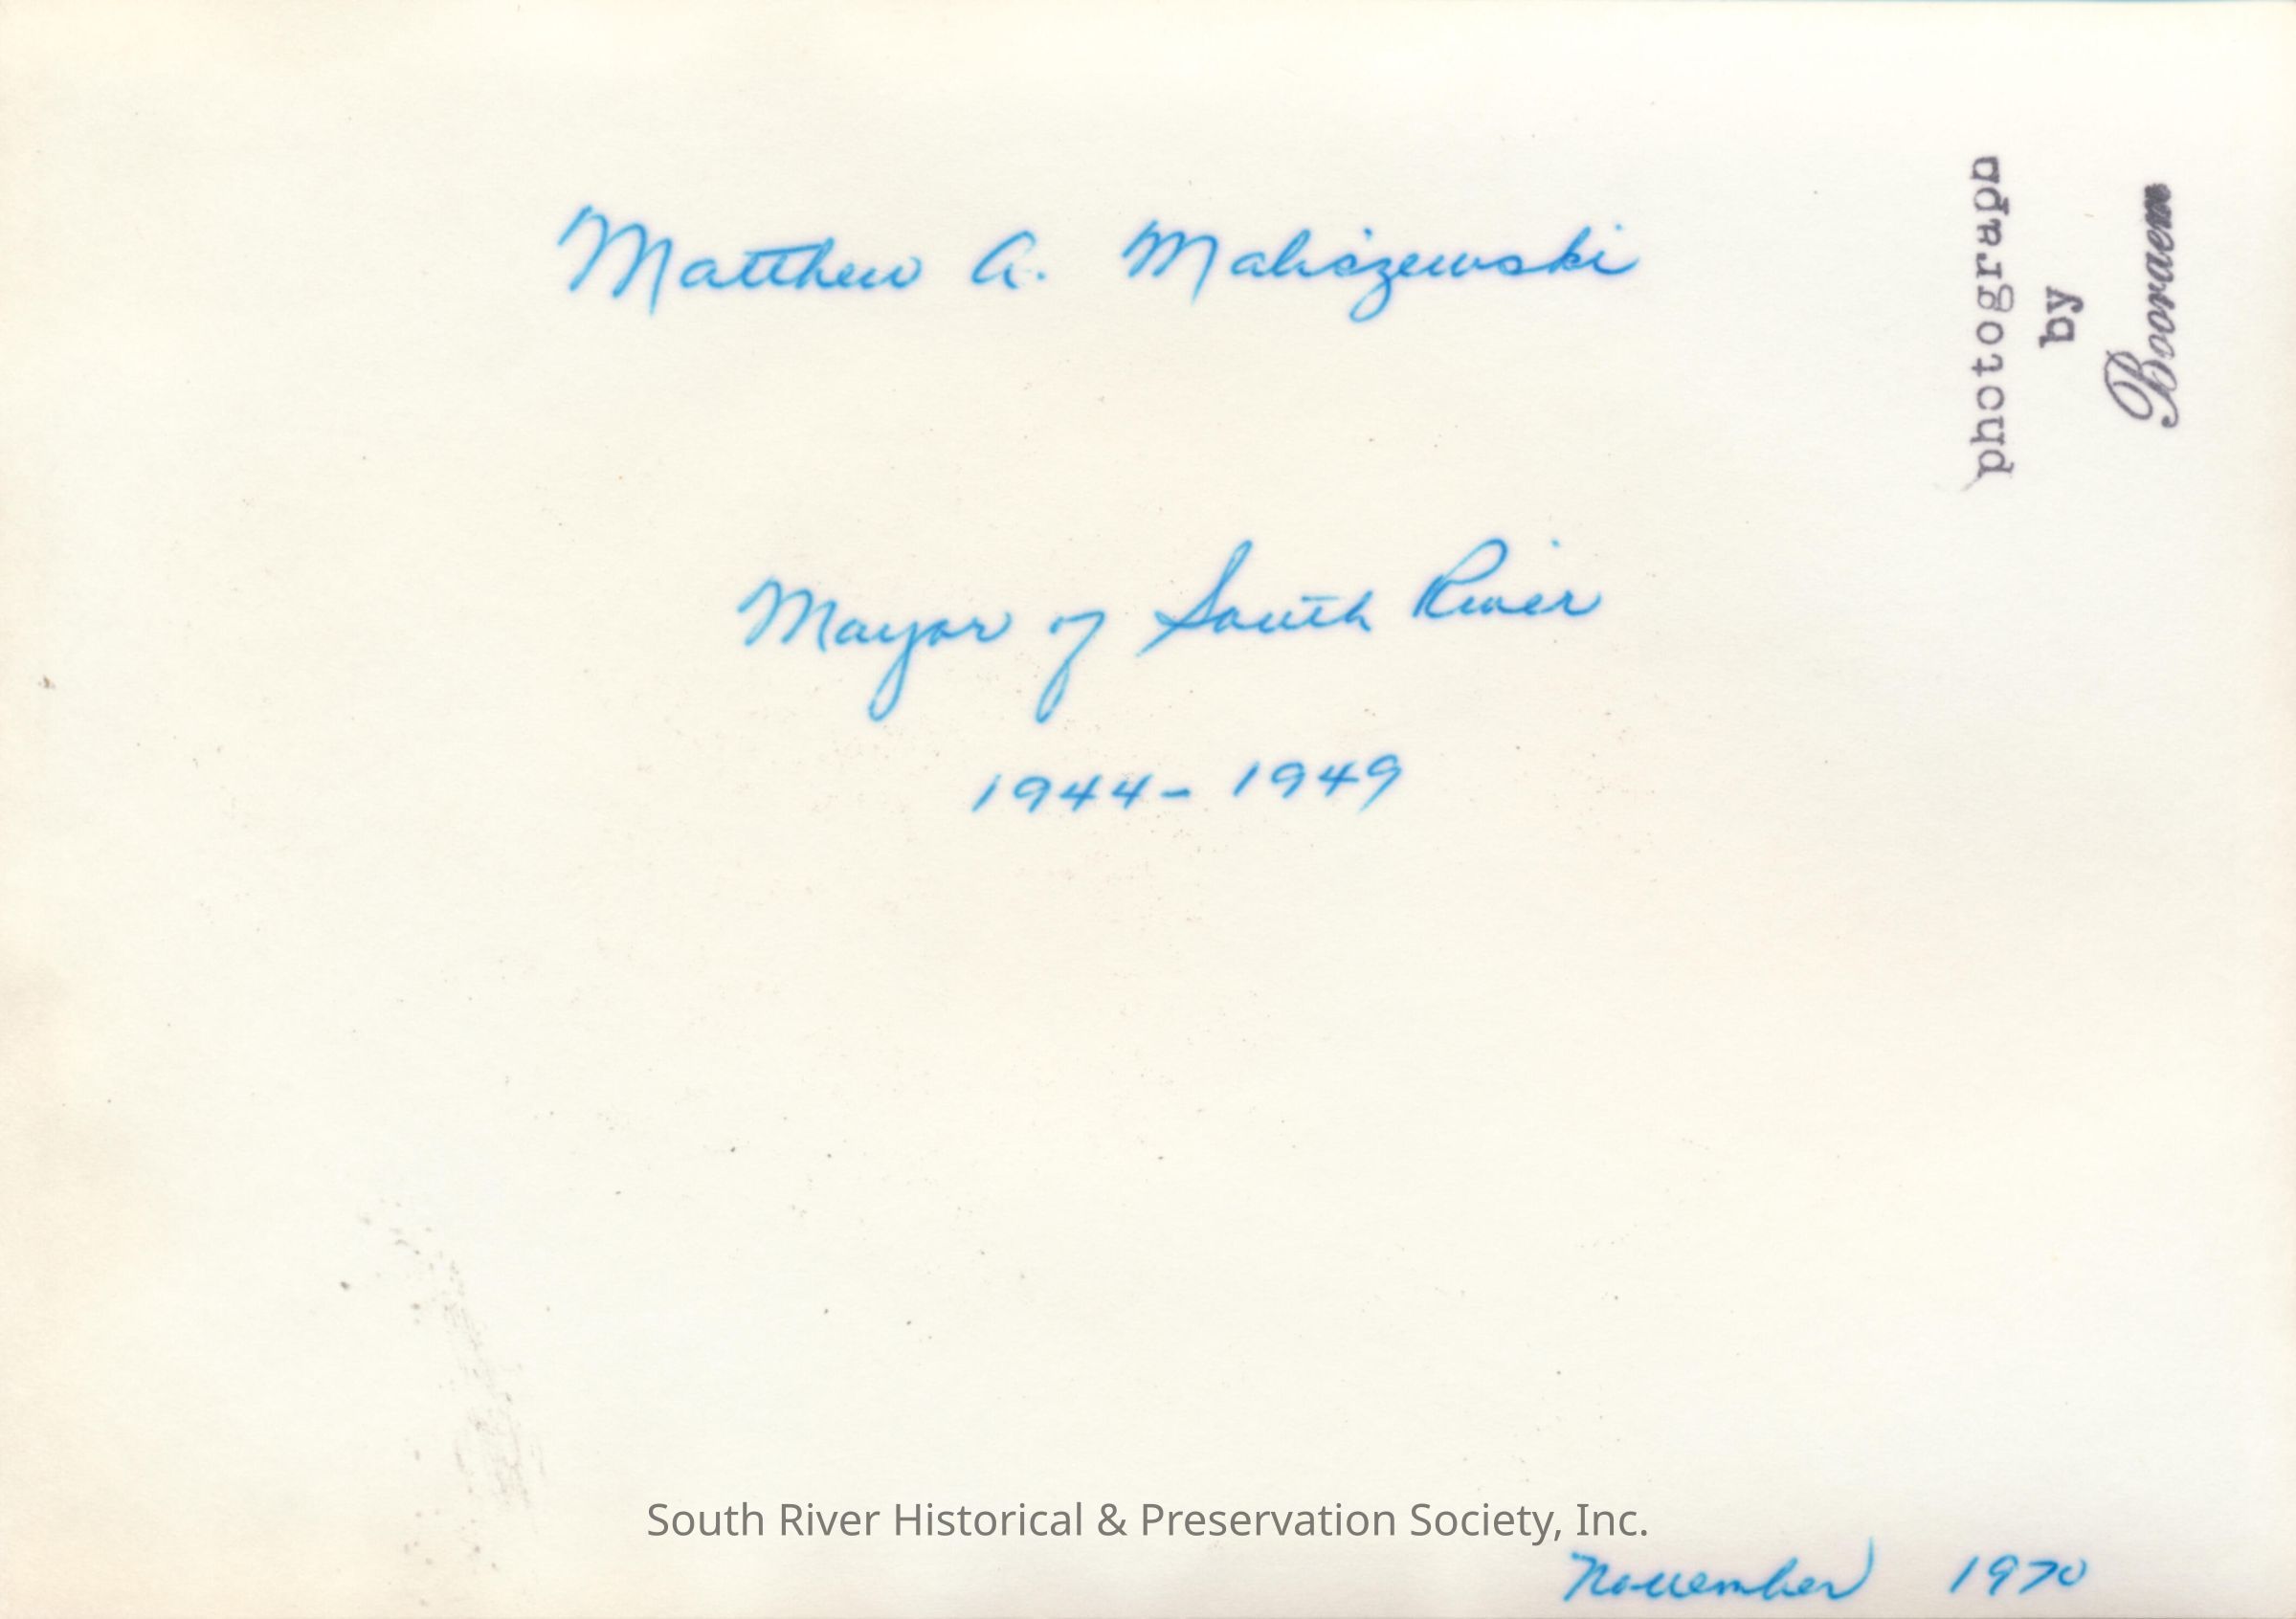 Matthew A. Maliszewski
Mayor of South River
1944-1949
photograph
by
Booraem
South River Historical & Preservation Society, Inc.
November 1970